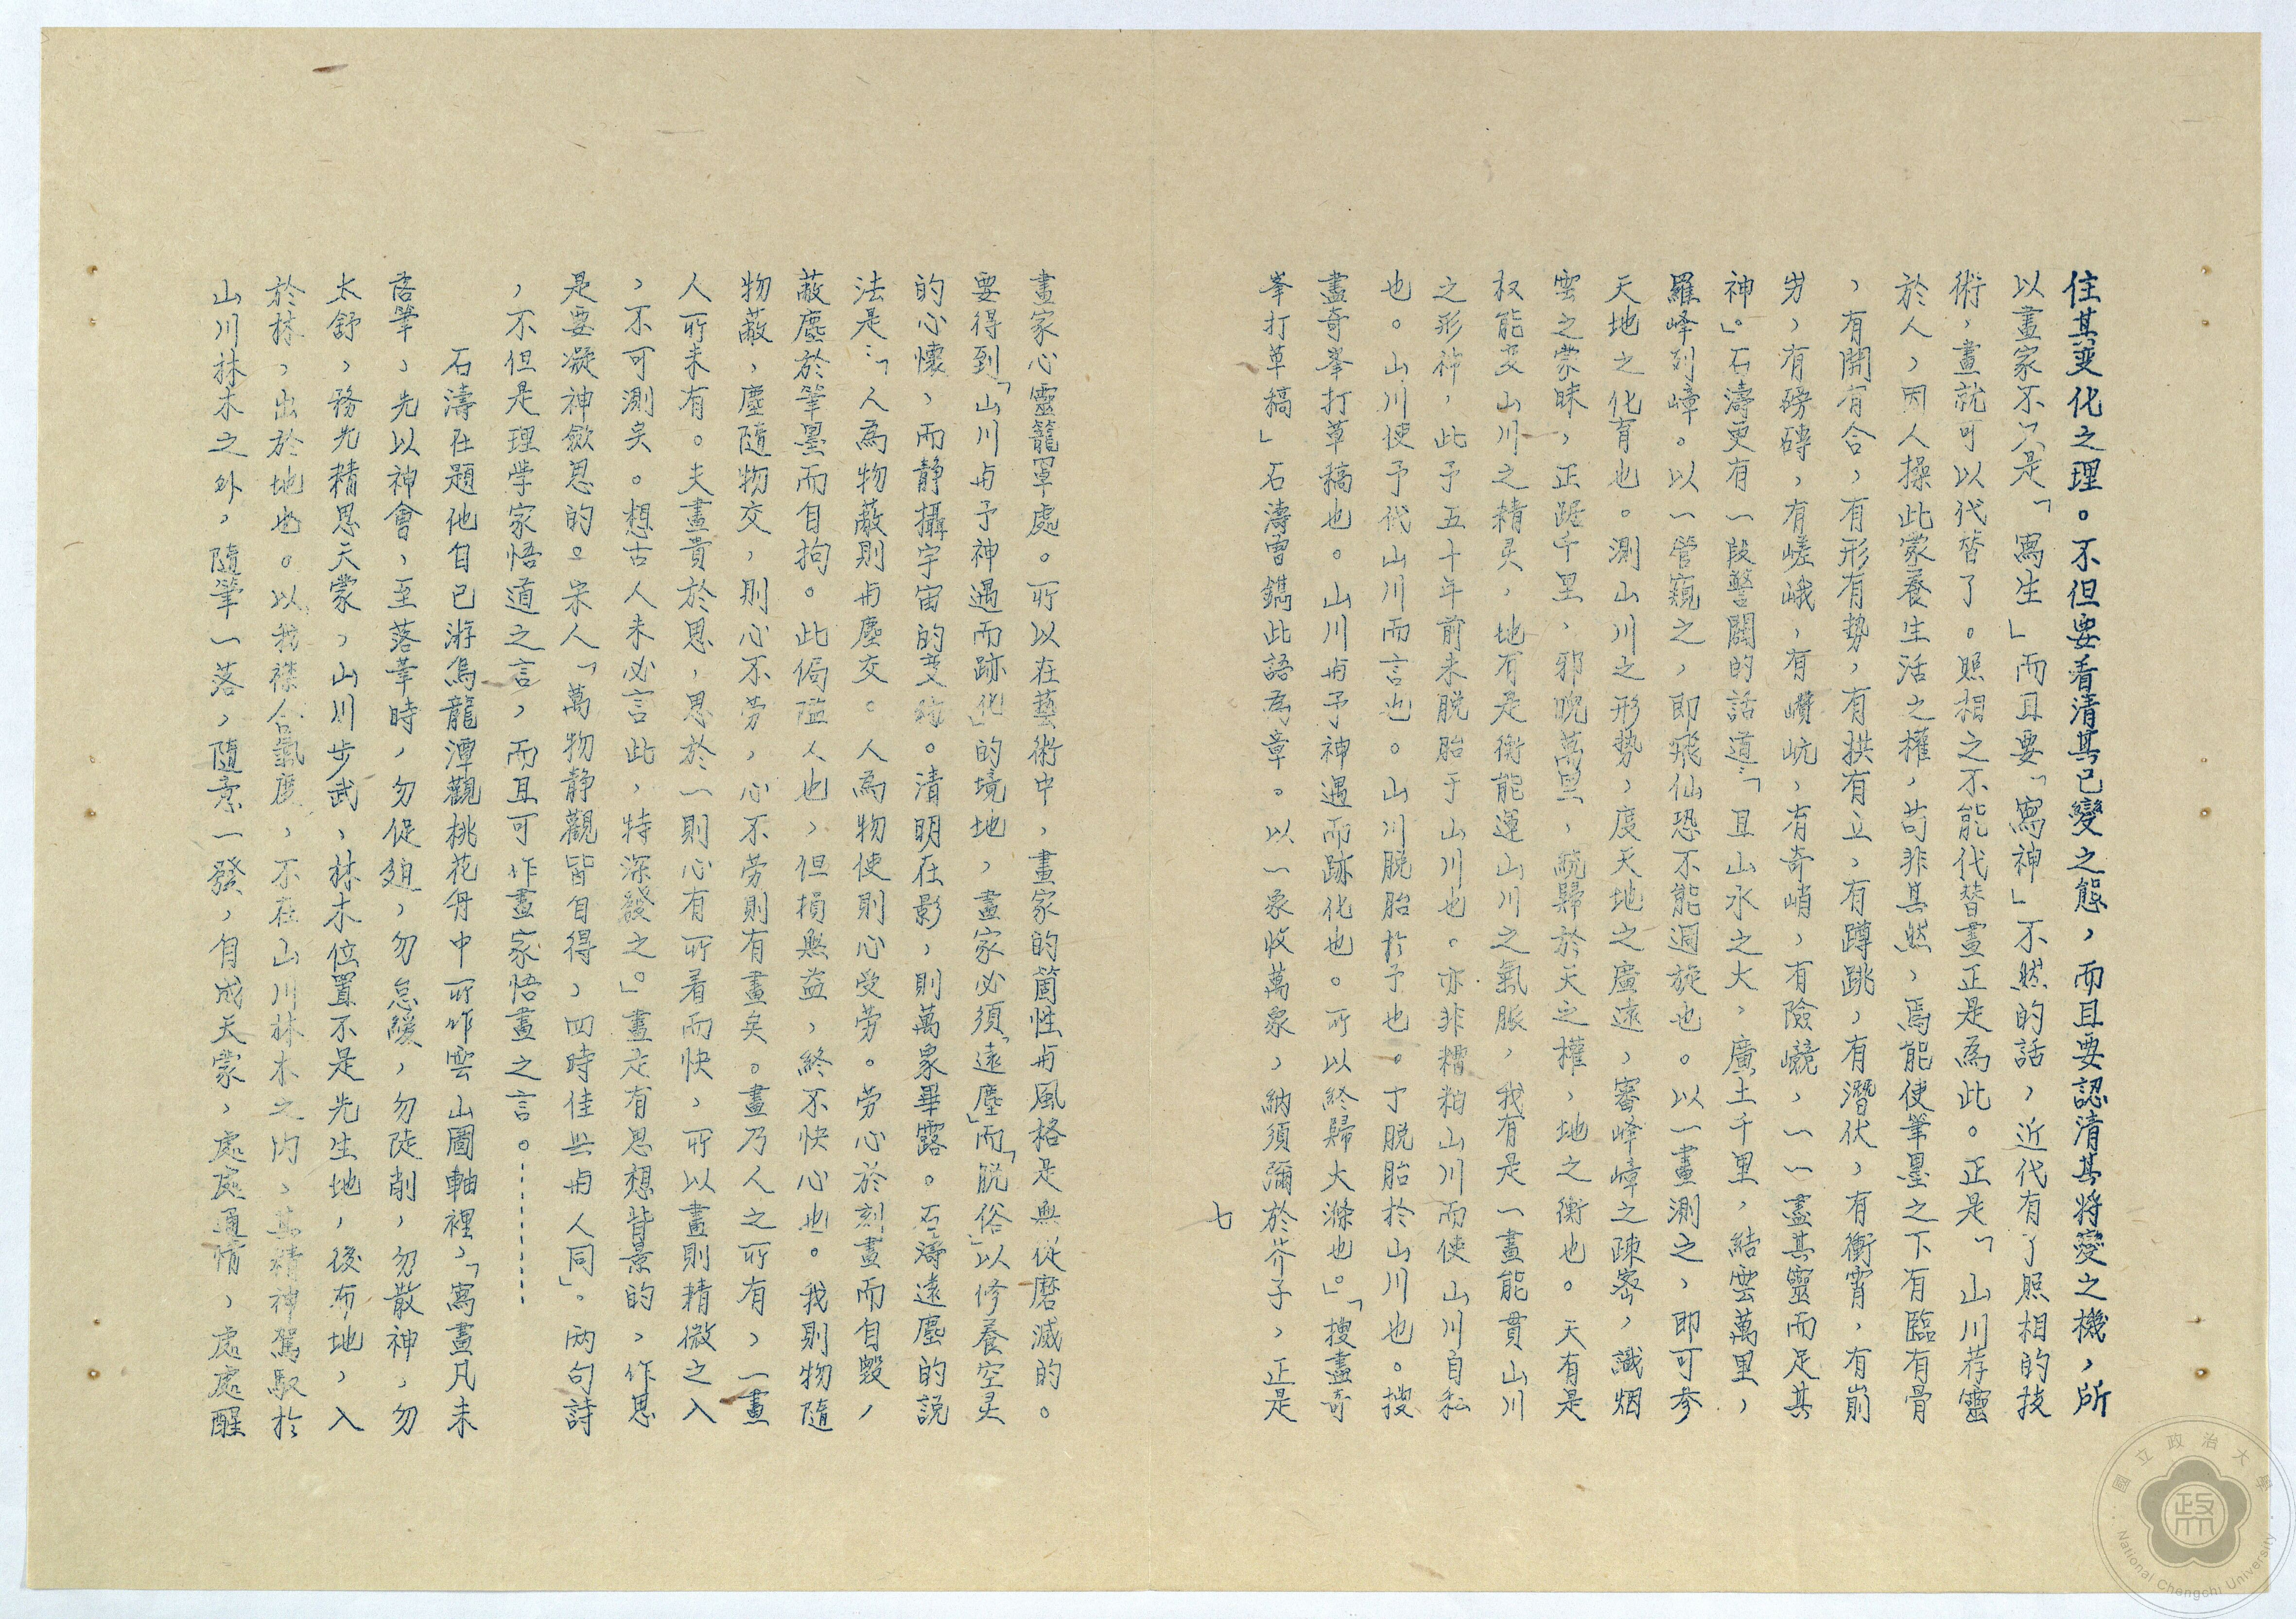 住其变化之理。不但要看清其已變之態，而且要認清其將變之機，所
以畫家不只是「寫生」而且要「寫神」不然的話，近代有了照相的技
術，畫就可以代替了。照相之不能代替畫正是為此。正是「山川荐靈
於人，因人操此蒙養生活之權，苟非其然，焉能使筆墨之下有臨有骨
，有開有合，有形有勢，有拱有立，有蹲跳，有潛伏，有衝霄，有崩
屴，有磅礴，有嵯峨，有巑岏，有奇峭，有險巇，一一盡其靈而足其
神。」石濤更有一段警闢的話道：「且山水之大，廣土千里，結雲萬里，
羅峰列嶂。以一管窺之，即飛仙恐不能週旋也。以一畫測之，即可參
天地之化育也。測山川之形勢，度天地之廣遠，審峰嶂之疎密，識烟
雲之蒙昧，正踞千里，邪睨萬里，統歸於天之權，地之衡也。天有是
权能变山川之精灵，地有是衡能運山川之氣脈，我有是一畫能貫山川
之形神，此予五十年前未脱胎于山川也。亦非糟粕山川而使山川自私
也。山川使予代山川而言也。山川脱胎於予也。予脱胎於山川也。搜
盡奇峯打草稿也。山川与予神遇而跡化也。所以終歸大滌也。」「搜盡奇
峯打草稿」石濤曾鐫此語為章。以一象收萬象，納須彌於芥子，正是
七
畫家心靈籠罩處。所以在藝術中，畫家的箇性与風格是無從磨滅的。
要得到「山川与予神遇而跡化」的境地，畫家必須「遠塵」而「脱俗」以修養空灵
的心懷，而静攝宇宙的变。清明在影，則萬象畢露。石濤遠塵的説
法是：「人為物蔽則与塵交。人為物使則心受劳。劳心於刻畫而自毀，
蔽塵於筆墨而自拘。此侷隘人也，但損無益，終不快心也。我則物隨
物蔽，塵隨物交，則心不劳，心不劳則有畫矣。畫乃人之所有，一畫
人所未有。夫畫貴於思，思於一則心有所着而快，所以畫則精微之入
，不可測矣。想古人未必言此，特深發之。」畫是有思想背景的，作思
是要凝神斂思的。宋人「萬物静觀皆自得，四時佳興与人同」。两句詩
，不但是理學家悟道之言，而且可作畫家悟畫之言。………
石濤在題他自己游烏龍潭觀桃花舟中所作雲山圖軸裡，「寫畫凡未
落筆，先以神會，至落筆時，勿促廹，勿怠緩，勿陡削，勿散神，勿
太舒，務先精思天蒙，山川步武，林木位置不是先生地，後布地，入
於林，出於地也。以我襟含氣度，不在山川林木之内，其精神駕馭於
山川林木之外，隨筆一落，隨意一發，自成天蒙，處處通情，處處醒
國立政治大學
National Chengchi University